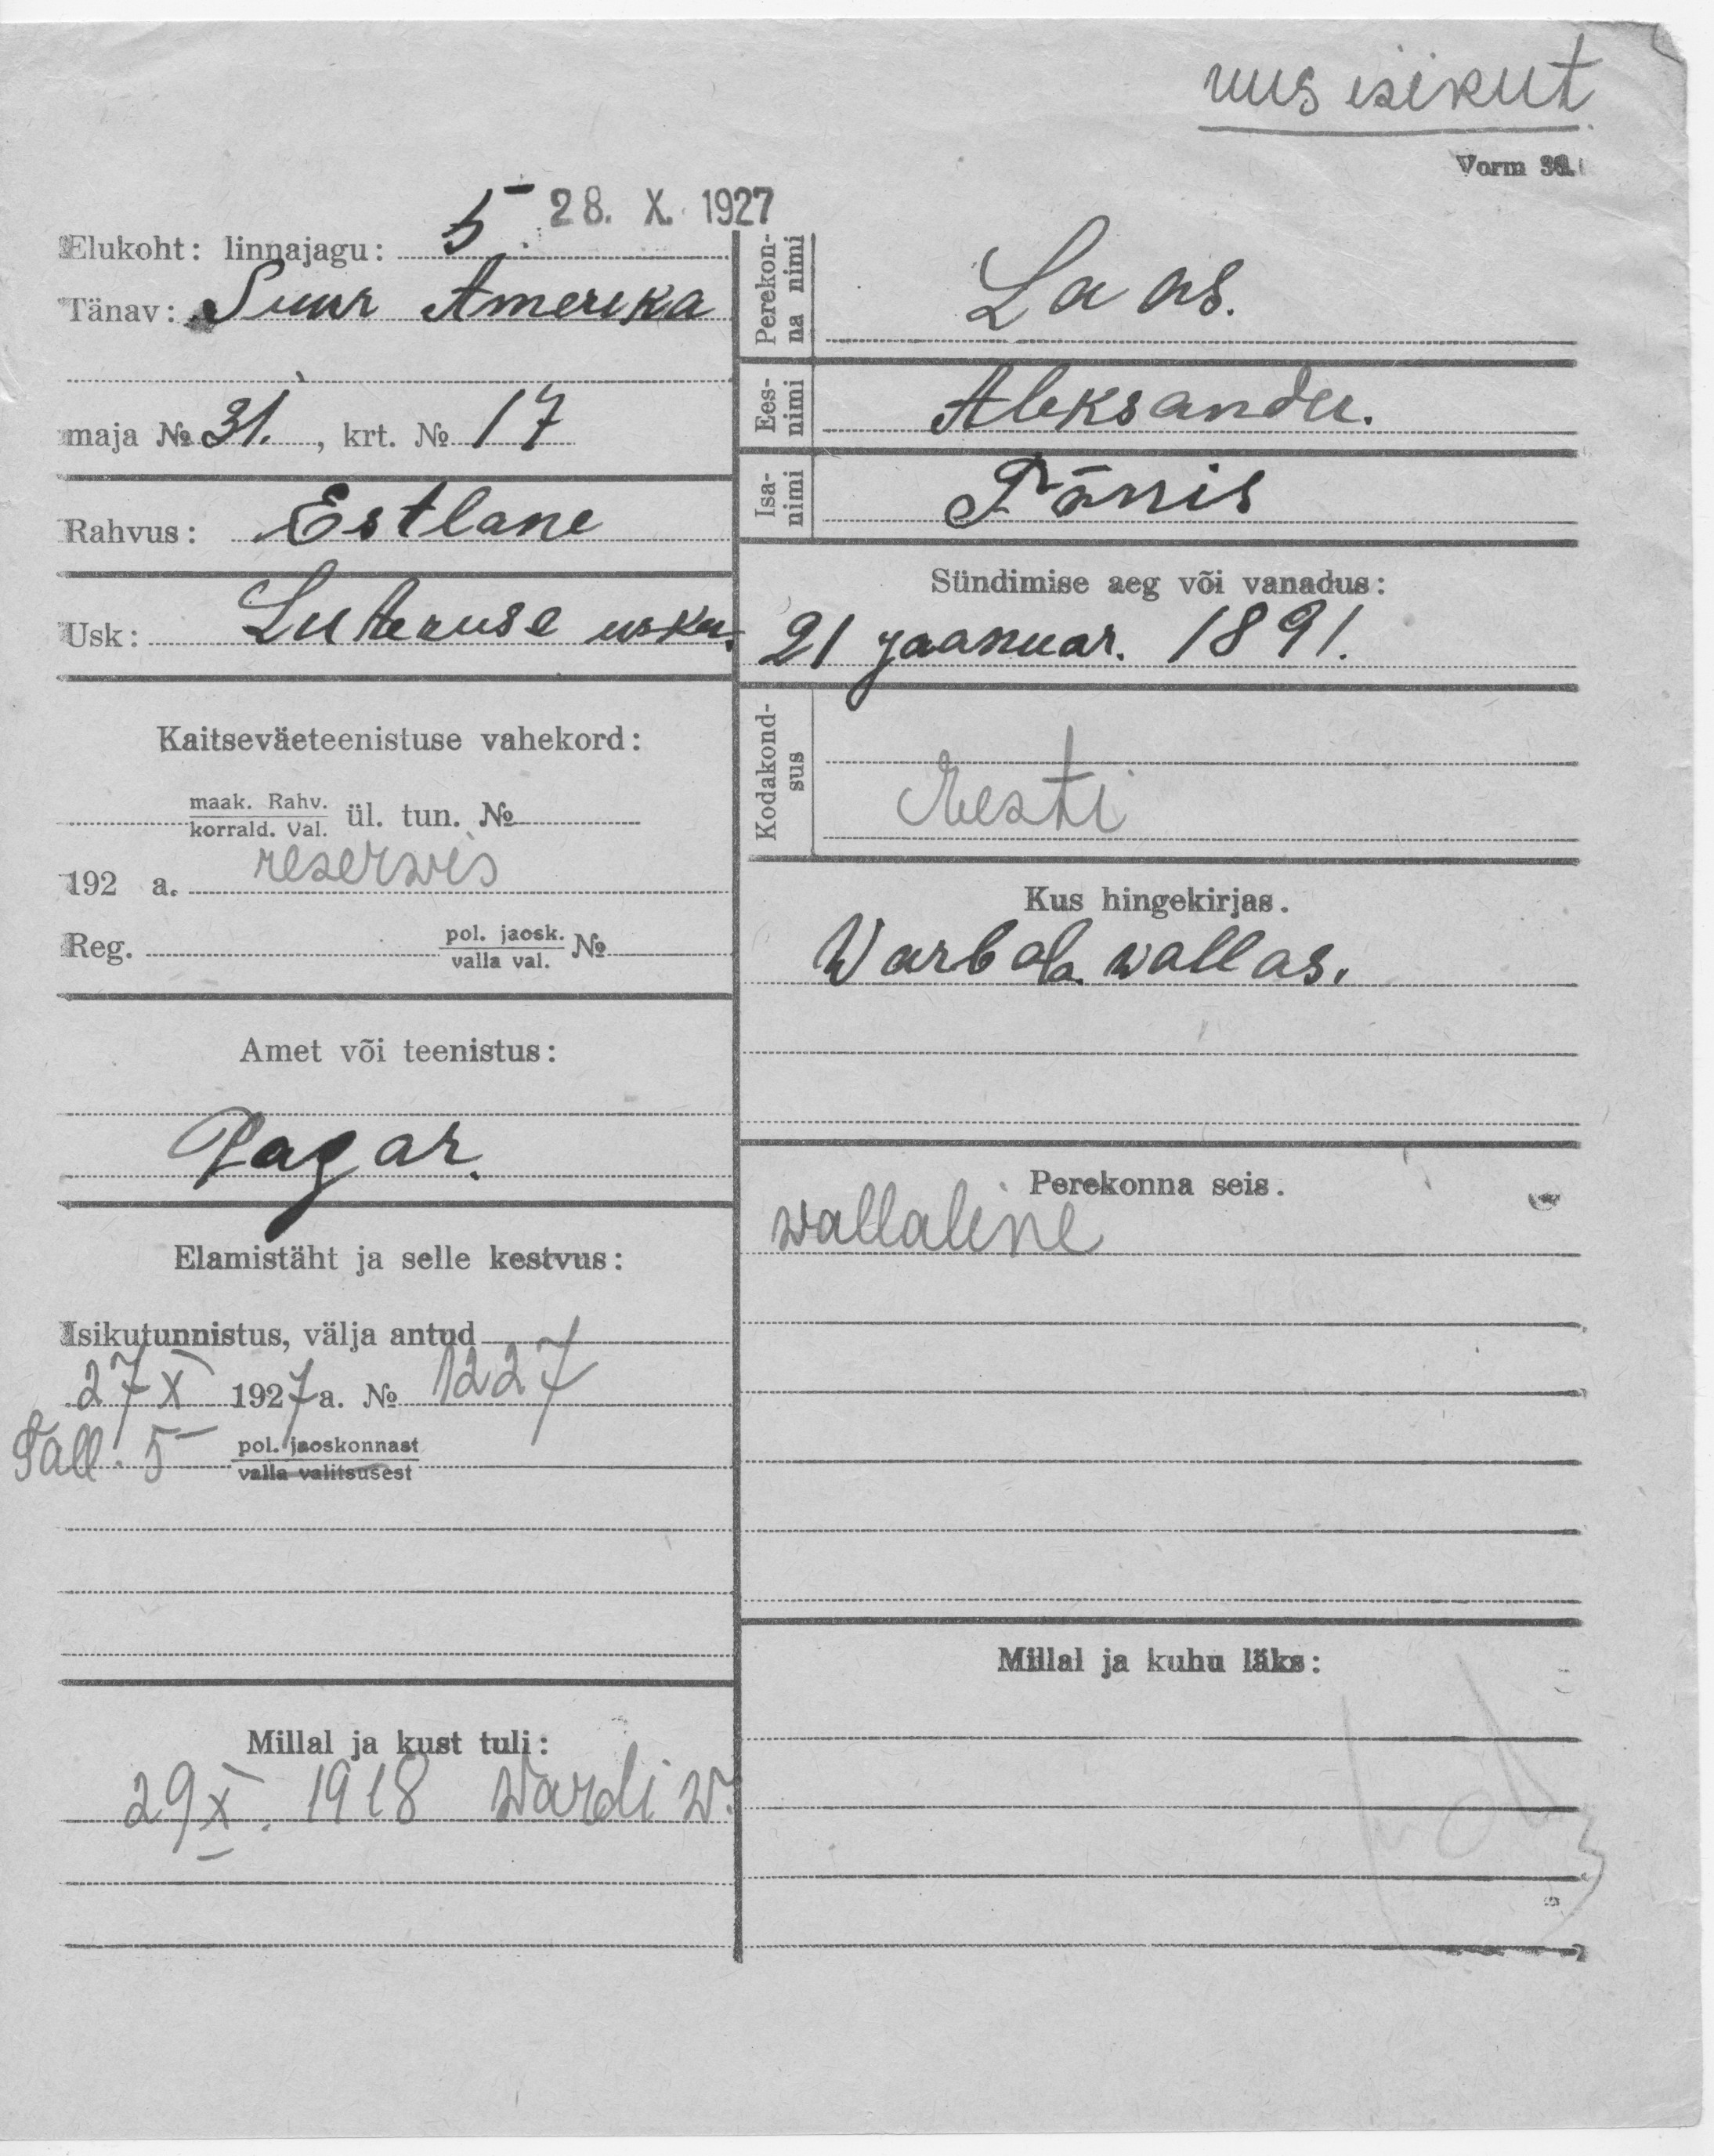 uus isikut
Vorm
28. X. 1927
Elukoht: linnajagu: 5
Tänav: Suur Amerika
maja № 31., krt. № 17
Rahvus: Estlane
Usk: Luteruse usku.
Kaitseväeteenistuse vahekord:
maak. Rahv.
korrald. Val. ül. tun. №
192 a. reserwis
Reg. pol. jaosk. №
valla val.
Amet või teenistus:
Pagar.
Elamistäht ja selle kestvus:
Isikutunnistus, välja antud
27 X 1927 a. № 1227
Tall. 5 pol. jaoskonnast
valla valitsusest
Millal ja kust tuli:
29 X. 1918 Wardi w.
Perekon-
na nimi
Laas.
Ees-
nimi
Aleksander.
Isa-
nimi
Tõnis
Sündimise aeg või vanadus:
21 jaanuar. 1891.
Kodakond-
sus
Eesti
Kus hingekirjas.
Warbola wallas.
Perekonna seis.
wallaline
Millal ja kuhu läks: